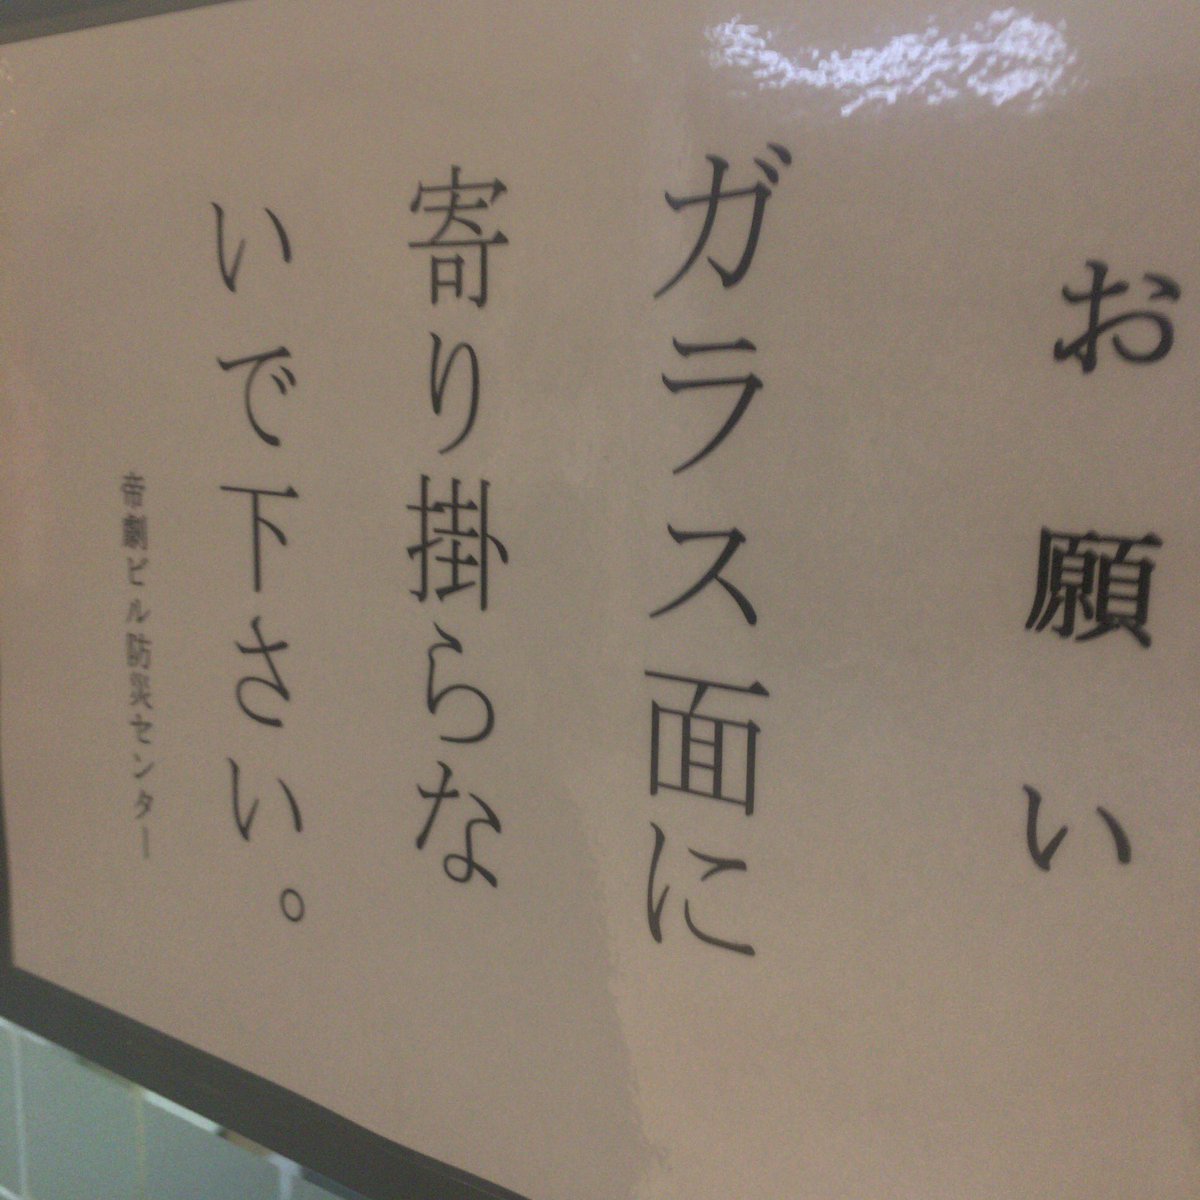 お願い
ガラス面に
寄り掛らな
いで下さい。
帝劇ビル防災センター